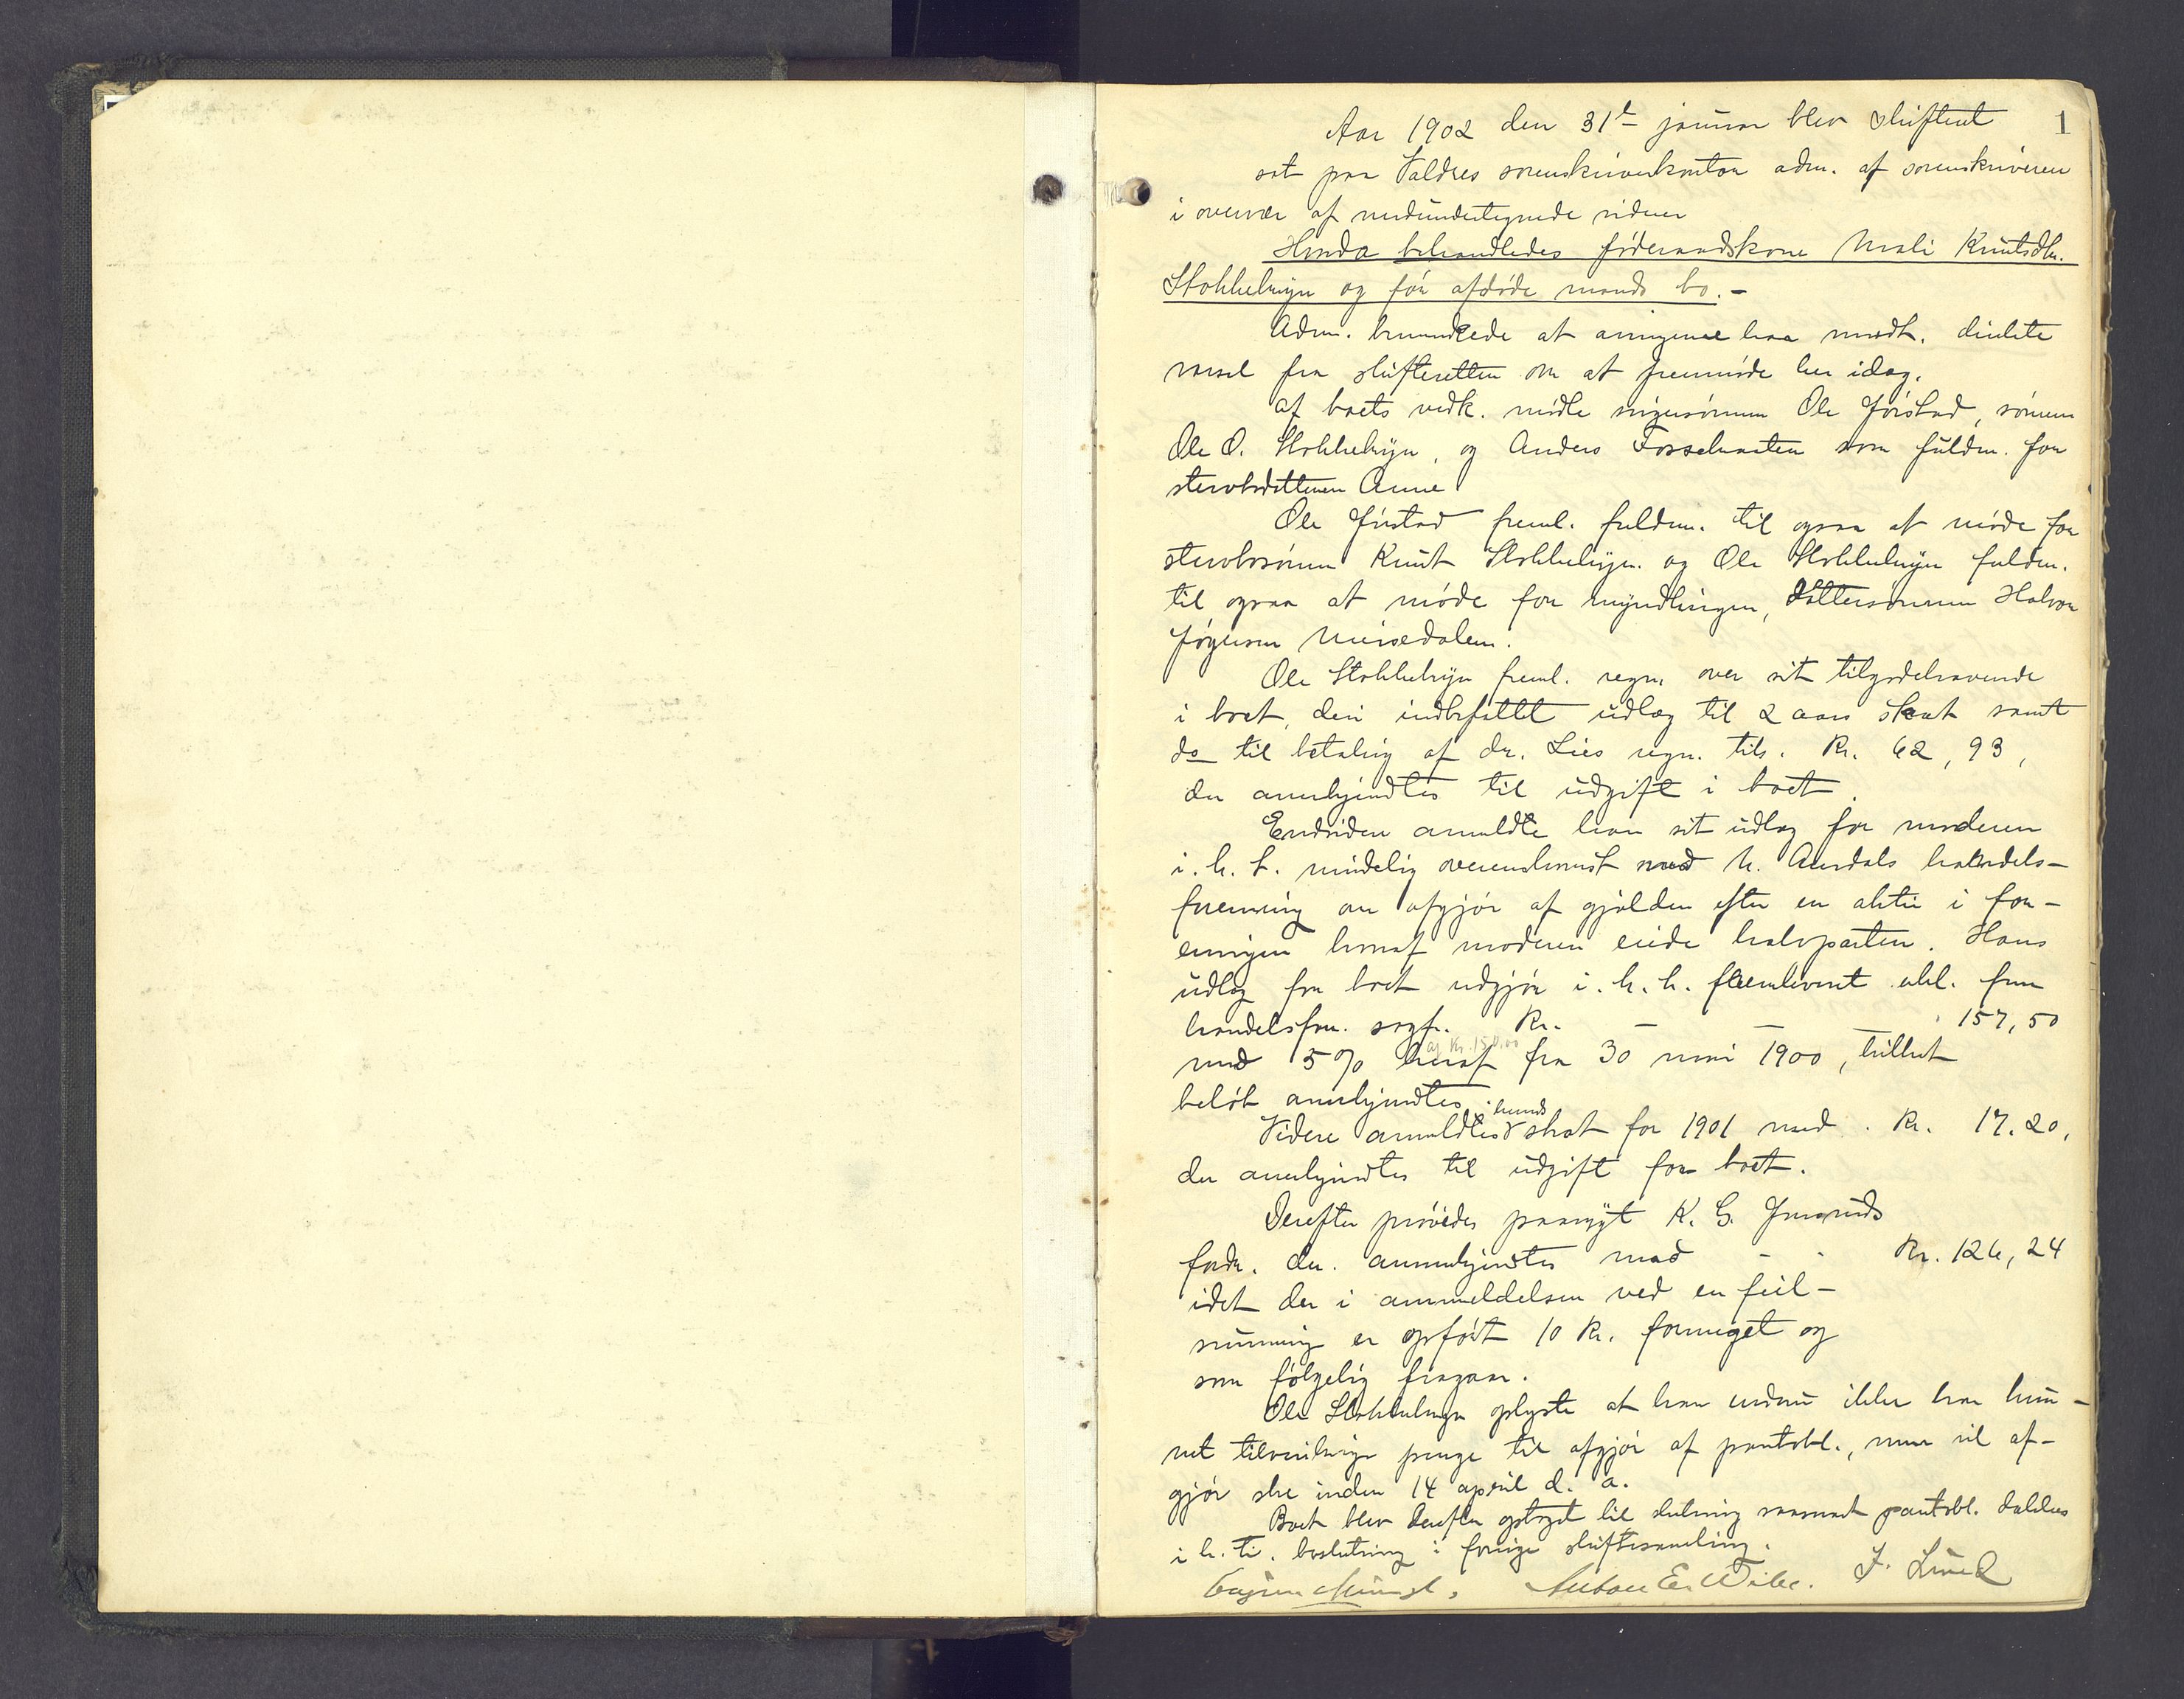 1
Aar 1902 den 31te januar blev skifteret
sat paa Valdres sorenskriverkontor adm. af sorenskriveren
i overvær af medundertegnede vidner
Hvorda behandledes föderaadskone Marit Knutsdtr.
Stokkebryn og før afdøde mands bo.-
Adm. bemærkede at arvingerne har modt. direkte
varsel fra skifteretten om at fremmöde her idag.
Af boets vedk. mödte svigersønnen Ole Jörstad, sønnen
Ole O. Stokkebryn, og Anders Fosseb som fuldm. for
stervbodatteren Anne
Ole Jörstad freml. fuldm. til ogsaa at möde for
stervbosønnen Knut Stokkebryn og Ole Stokkebryn fuldm.
til ogsaa at möde for myndlingen, Dattersønnen Halvor
dalen.
Ole Stokkebryn freml. regn. over sit tilgodehavende
i boet, deri indbefattet udlæg til 2 aars skat samt
do til betaling af dr. Lies regn. tils. Kr. 62,93,
der anerkjendtes til udgift i boet.
Endvidere anmeldte han sit udlæg for moderen
i. h. t. mindelig overenskomst med N. Aurdals handels-
forening om afgjör af gjælden efter en aktie i for-
eningen hvoraf moderen eiede halvparten. Hans
udlæg for boet udgjör i. h. h. fremleveret obl. fra
handelsfor. sagf. Kr. — — — 157,50
med 5% heraf fra 30 mai 1900, hvilket
af Kr. 150.00
belöb anerkjendtes.
Videre anmeldtes hends skat for 1901 med. Kr. 17.20,
der anerkjendtes til udgift for boet.
Derefter prövedes paanyt K. G.
fordr. der anerkjendtes med - - Kr. 126,24
idet der i anmeldelsen ved en feil-
summing er opfört 10 Kr. formeget og
som fölgelig fragaar.
Ole Stokkebryn oplyste at han endnu ikke har kun-
net tilveiebringe penge til afgjör af pantobl., men vil af-
gjör ske inden 14 april d. a.
Boet blev derefter optaget til slutning saasnart pantobl.
i h. t. beslutning i forrige skiftesamling.
Anton E. Wibe. J. Lund